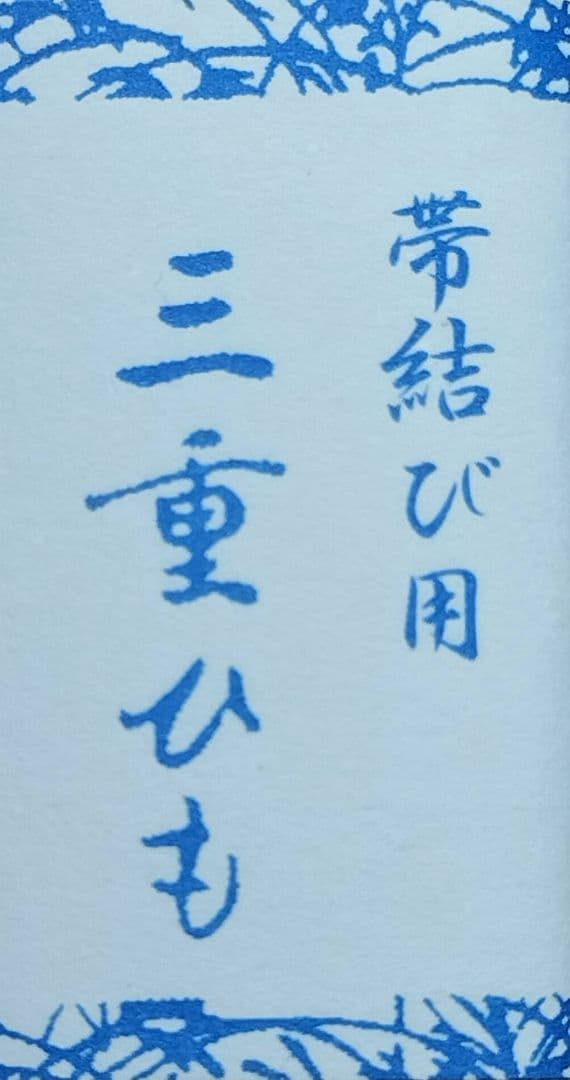 帯結び用
三重ひも